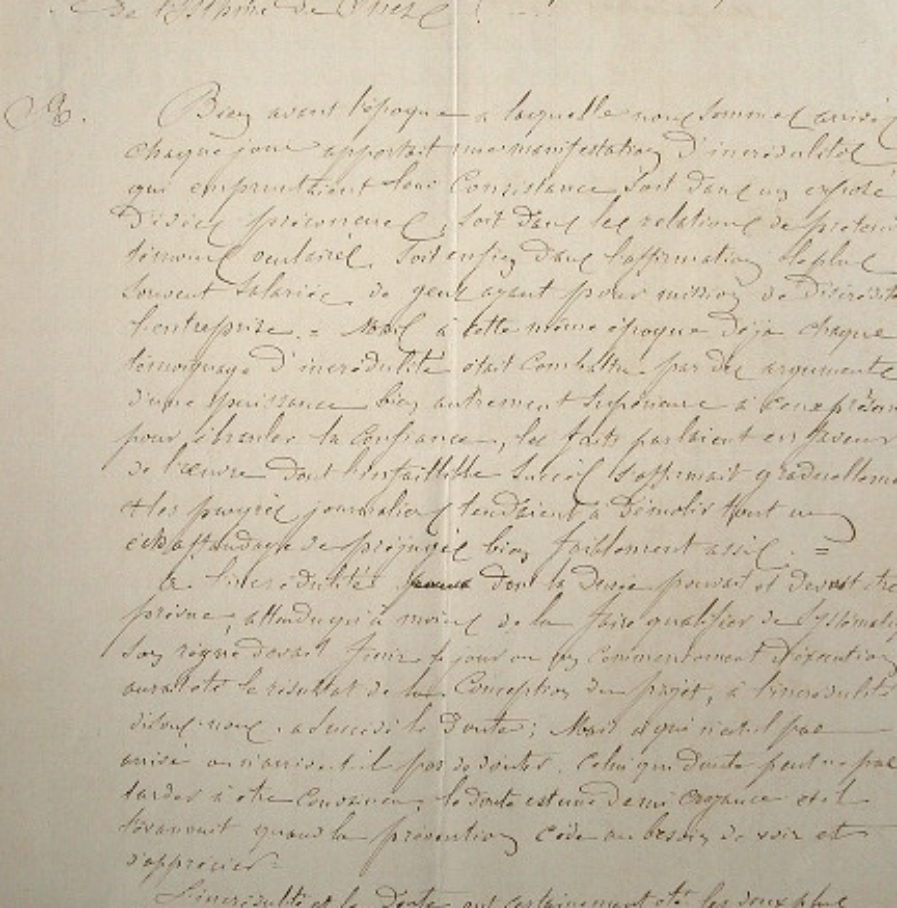 de l'Isthme de Suez
Bien avant l'époque à laquelle nous sommes arrivés
chaque jour apportait une manifestation d'incrédulités
qui empruntaient leur consistance, soit dans un exposé
d'idées préconçues, soit dans les relations de prétendus
témoins oculaires, soit enfin dans l'affirmation le plus
souvent salariée, de gens ayant pour mission de discréditer
l'entreprise. = Mais à cette même époque déjà chaque
témoignage d'incrédulité était combattu par des arguments
d'une puissance bien autrement supérieure à ceux
pour ébranler la confiance, les faits parlaient en faveur
de l'œuvre dont l'infaillible succès s'affirmait graduellement
et les progrès journaliers tendaient à démolir tout un
échaffaudage de préjugés bien faiblement assis. =
à l'incrédulité dont la durée pouvait et devait être
prévue, attendu qu'à moins de la faire qualifier de
son règne devait finir le jour où un commencement d'exécution
aurait été le résultat de la conception du projet, à l'incrédulité
disons-nous, a succédé le doute; Mais à qui n'est-il pas
arrivé ou n'arrive-t-il pas de douter. Celui qui doute peut ne pas
tarder à être convaincu, le doute est une demi croyance et il
s'évanouit quand la prévention cède au besoin de voir et
d'apprécier =
L'incrédulité et le Doute ont certainement été les deux plus